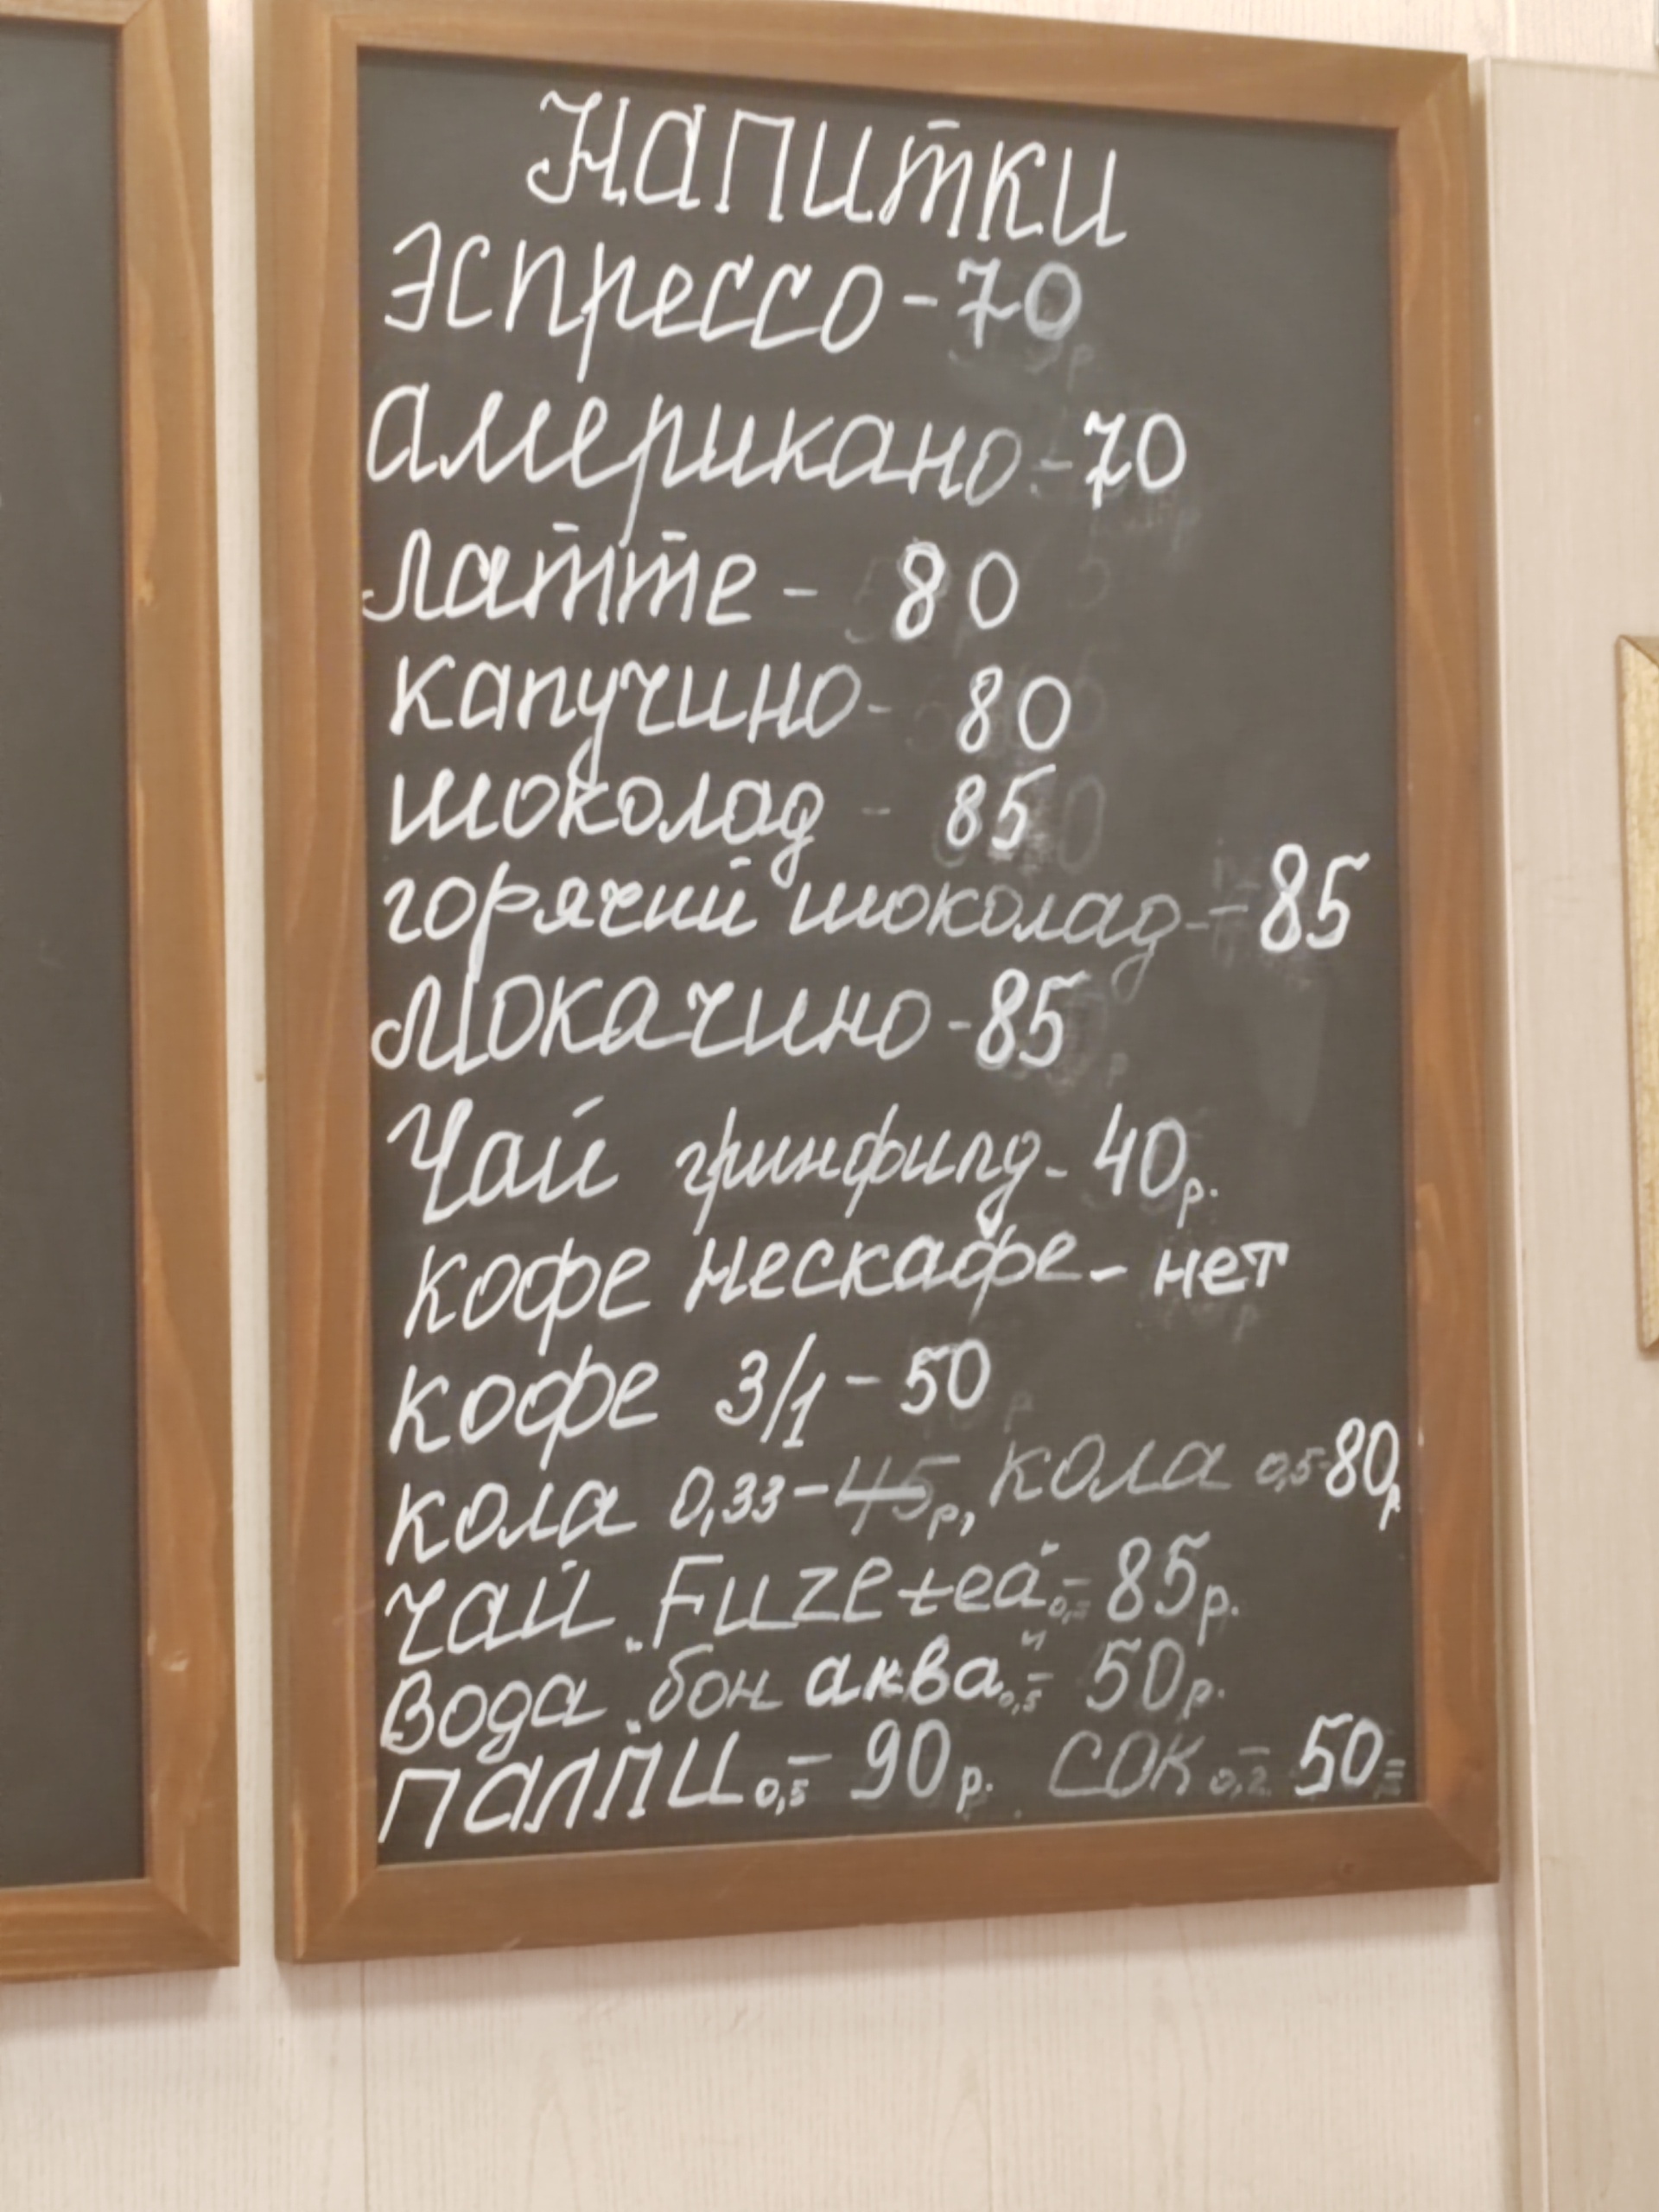 Напитки
Эспрессо - 70
американо - 70
Латте - 80
капучино - 80
шоколад - 85
горячий шоколад - 85
Мокачино - 85
Чай гринфилд - 40р.
кофе нескафе - нет
кофе 3/1 - 50
кола 0,33 - 45р, кола 0,5 - 80р
чай „Fuze tea" - 85р.
вода „бон аква" 0,5 - 50р.
палпи 0,5 - 90р. сок 0,2 - 50=